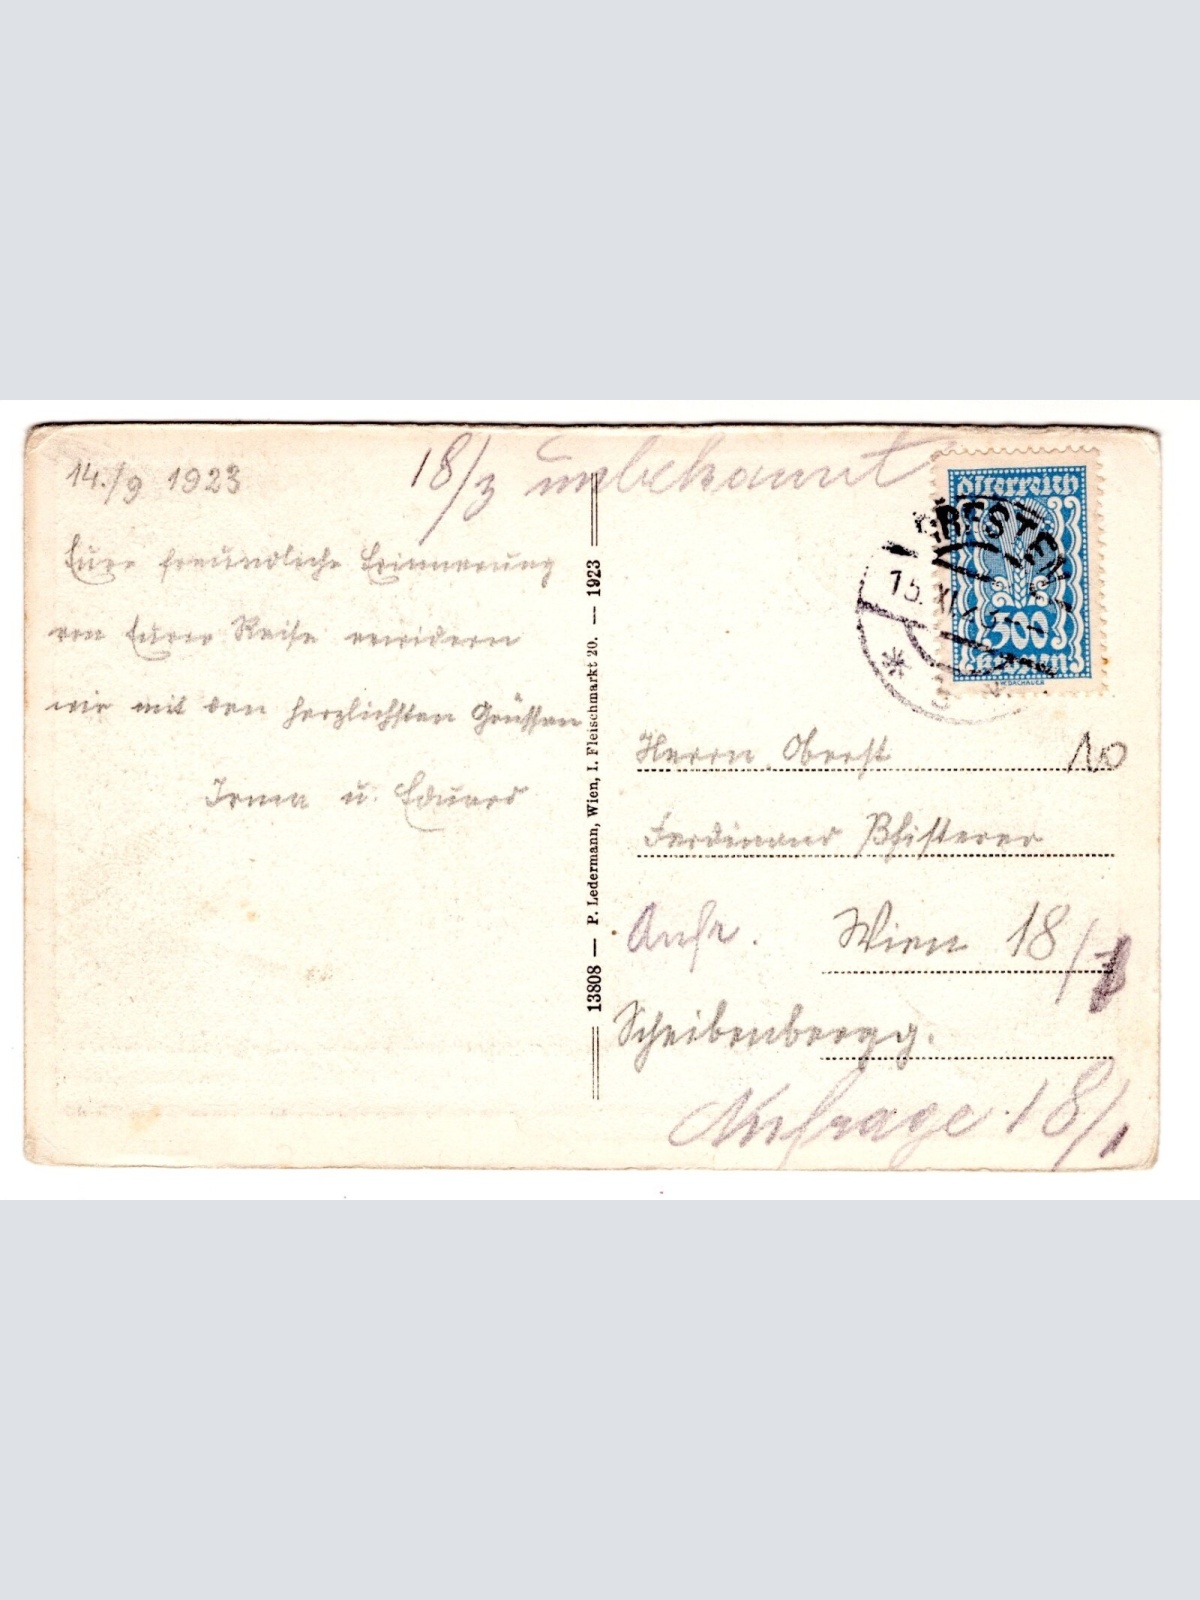 14./9 1923
18/3 unbekannt
Eure freundliche Erinnerung
von Eurer Reise erwidern
wir mit den herzlichsten Grüssen
Irma u. Eduard
13808 — P. Ledermann, Wien, I. Fleischmarkt 20. — 1923
Österreich
500
Kronen
W. DACHAUER
15. XI. 23
Herrn Oberst
10
Ferdinand Pfisterer
Wien 18/1
Scheibenbergg.
Anfrage 18/1